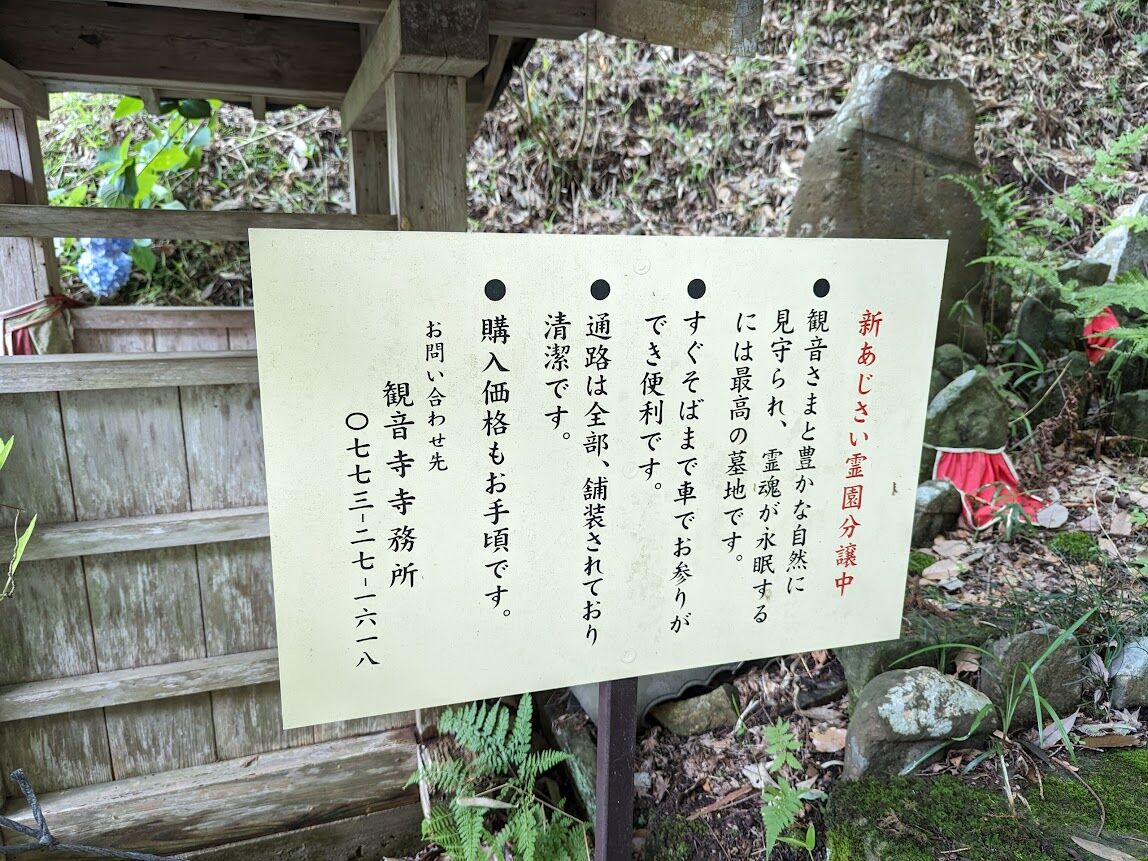 新あじさい霊園分譲中
●観音さまと豊かな自然に
見守られ、霊魂が永眠する
には最高の墓地です。
●すぐそばまで車でお参りが
でき便利です。
●通路は全部、舗装されており
清潔です。
●購入価格もお手頃です。
お問い合わせ先
観音寺寺務所
〇七七三-二七-一六一八